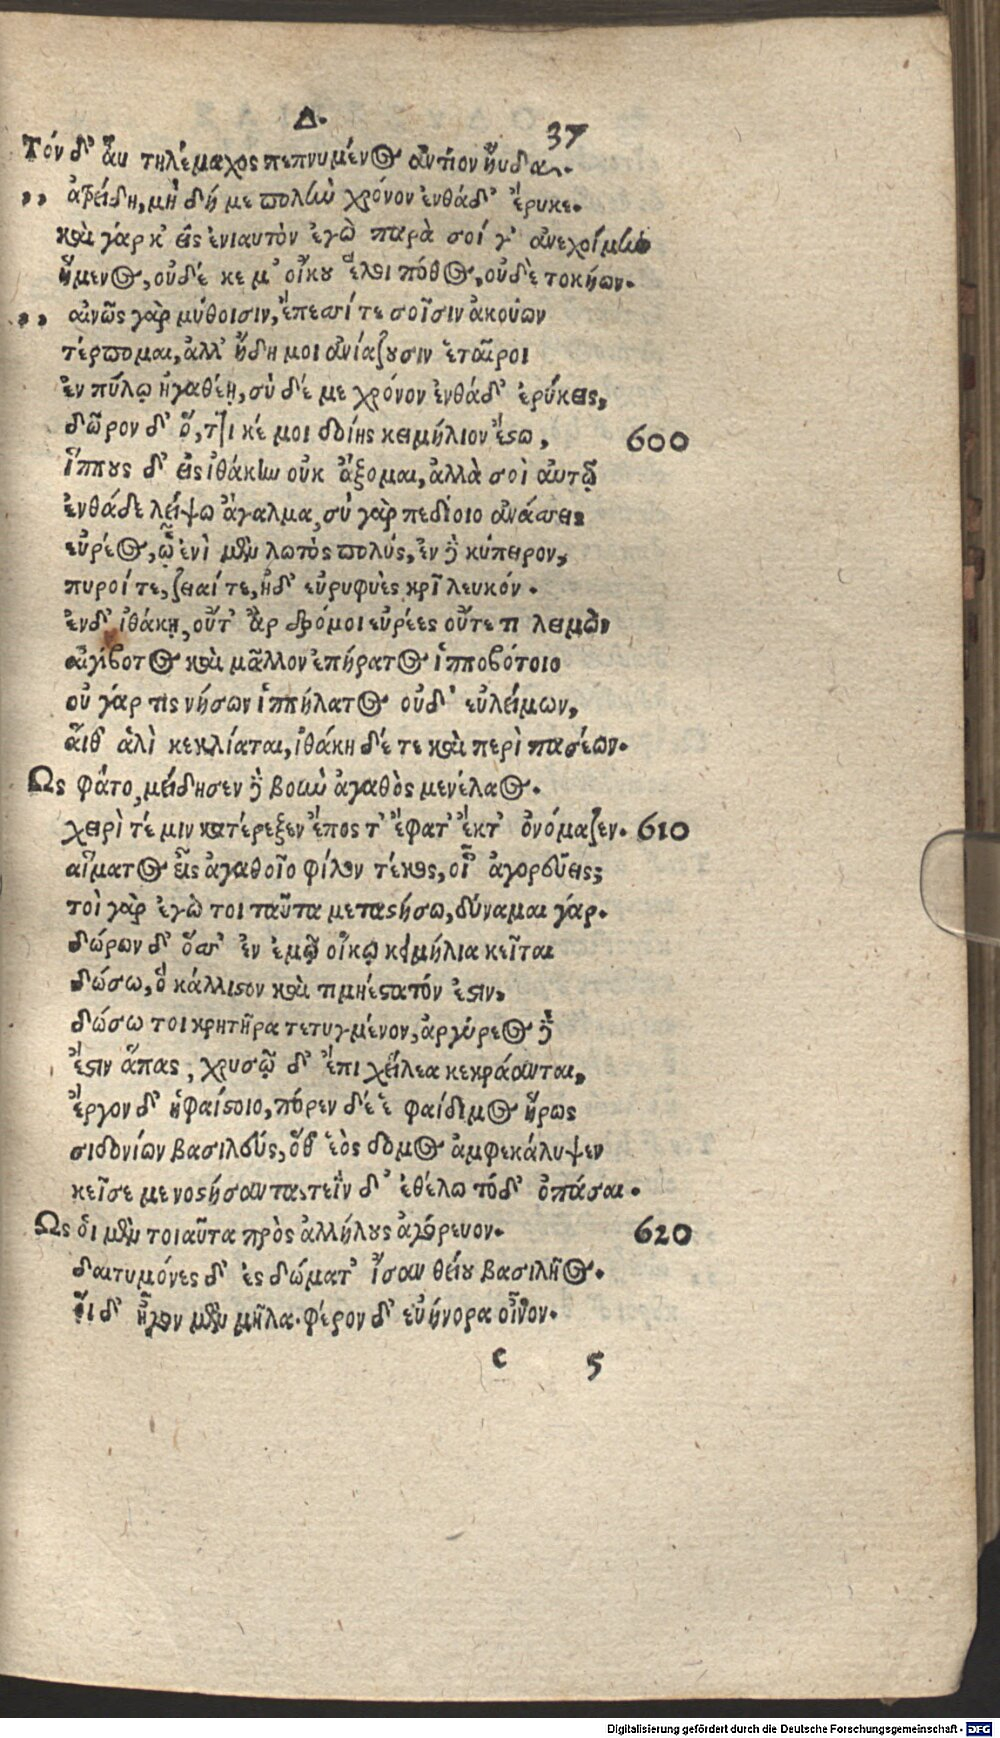 Δ.
37
Τόν δ' αὖ τηλέμαχος πεπνυμένος ἀντίον ηὔδα.
,, ἀτρείδη, μὴ δή με πολὺν χρόνον ἐνθάδ' ἔρυκε.
καὶ γάρ κ' εἰς ἐνιαυτὸν ἐγὼ παρὰ σοί γ' ἀνεχοίμην
ἥμενος, οὐδέ κε μ' οἴκου ἕλοι πόθος, οὐδὲ τοκήων.
,, αἰνῶς γὰρ μύθοισιν, ἔπεσσί τε σοῖσιν ἀκούων
τέρπομαι, ἀλλ' ἤδη μοι ἀνιάζουσιν ἑταῖροι
ἐν πύλῳ ἠγαθέῃ, σὺ δέ με χρόνον ἐνθάδ' ἐρύκεις,
δῶρον δ' ὅ, ττι κέ μοι δοίης κειμήλιον ἔστω, 600
ἵππους δ' εἰς ἰθάκην οὐκ ἄξομαι, ἀλλὰ σοὶ αὐτῷ
ἐνθάδε λείψω ἄγαλμα, σὺ γὰρ πεδίοιο ἀνάσσεις
εὐρέος, ᾧ ἐνὶ μὲν λωτὸς πολύς, ἐν δὲ κύπειρον,
πυροί τε, ζειαί τε, ἠδ' εὐρυφυὲς κρῖ λευκόν.
ἐνδ' ἰθάκῃ, οὔτ' ἂρ δρόμοι εὐρέες οὔτε τι λειμών
αἰγίβοτος καὶ μᾶλλον ἐπήρατος ἱπποβότοιο
οὐ γάρ τις νήσων ἱππήλατος οὐδ' εὐλείμων,
αἵθ' ἁλὶ κεκλίαται, ἰθάκη δέ τε καὶ περὶ πασέων.
Ὣς φάτο, μείδησεν δὲ βοὴν ἀγαθὸς μενέλαος.
χειρὶ τέ μιν κατέρεξεν ἔπος τ' ἔφατ' ἔκτ' ὀνόμαζεν. 610
αἵματος εἷς ἀγαθοῖο φίλον τέκος, οἷ' ἀγορεύεις;
τοὶ γὰρ ἐγώ τοι ταῦτα μεταστήσω, δύναμαι γάρ.
δώρων δ' ὅσσ' ἐν ἐμῷ οἴκῳ κειμήλια κεῖται
δώσω, ὃ κάλλιστον καὶ τιμηέστατόν ἐστιν,
δώσω τοι κρητῆρα τετυγμένον, ἀργύρεος δὲ
ἔστιν ἅπας, χρυσῷ δ' ἔπι χείλεα κεκράανται,
ἔργον δ' ἡφαίστοιο, πόρεν δέ ἑ φαίδιμος ἥρως
σιδονίων βασιλεύς, ὅθ' ἑὸς δόμος ἀμφεκάλυψεν
κεῖσε με νοστήσαντα. τεῒν δ' ἐθέλω τόδ' ὀπάσαι.
Ὣς οἱ μὲν τοιαῦτα πρὸς ἀλλήλους ἀγόρευον. 620
δαιτυμόνες δ' ἐς δώματ' ἴσαν θείου βασιλῆος.
οἱ δ' ἦγον μὲν μῆλα. φέρον δ' εὐήνορα οἶνον.
c 5
Digitalisierung gefördert durch die Deutsche Forschungsgemeinschaft - DFG